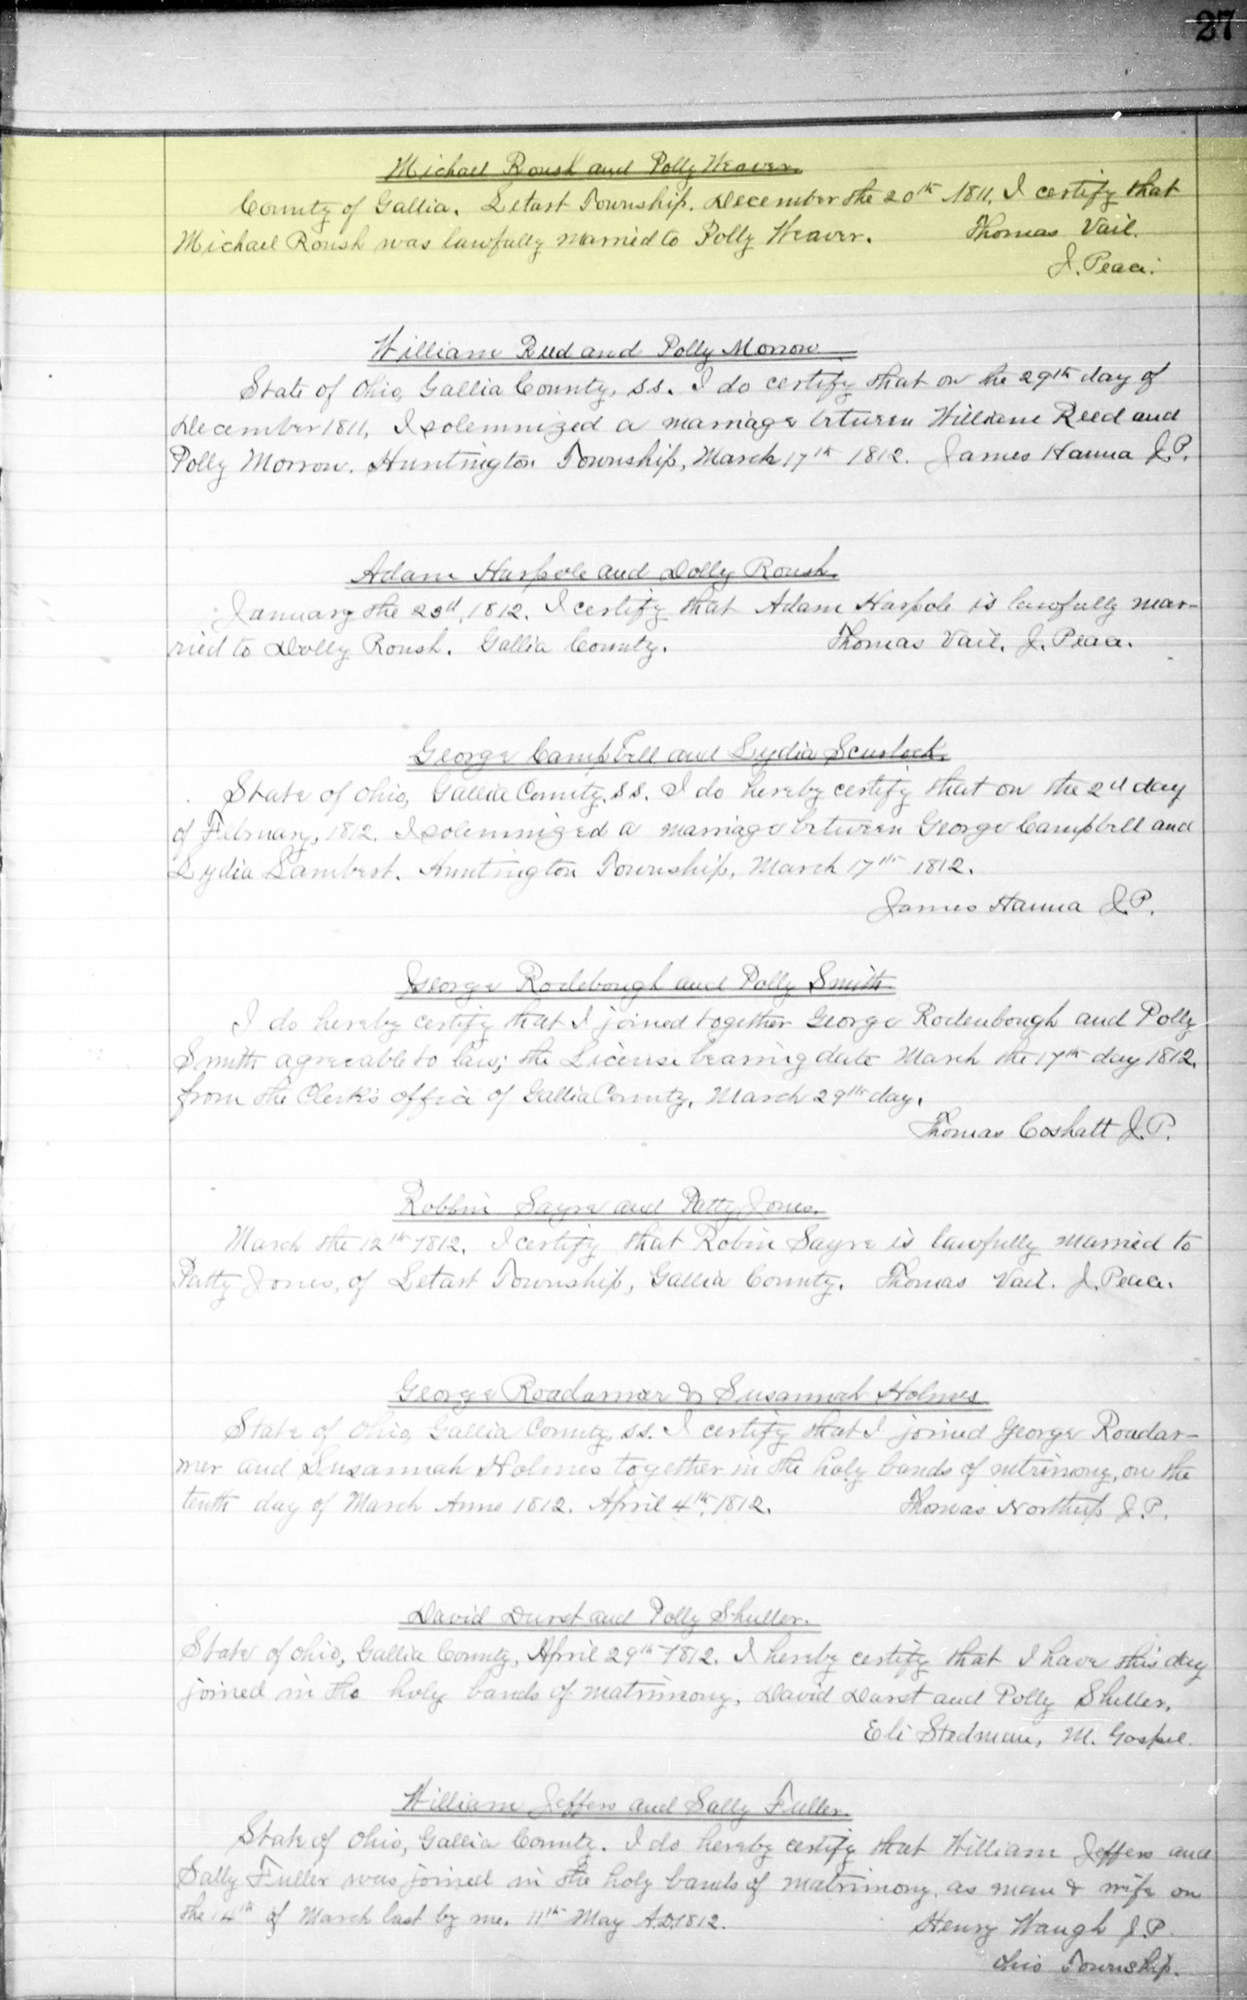 27
Michael Roush and Polly Weaver.
County of Gallia. Letart Township. December the 20th 1811, I certify that
Michael Roush was lawfully married to Polly Weaver. Thomas Vail.
J. Peace.
William Reed and Polly Morrow
State of Ohio, Gallia County, ss. I do certify that on the 29th day of
December 1811, I solemnized a marriage between William Reed and
Polly Morrow. Huntington Township, March 17th 1812. James Hanna J.P.
Adam Harpole and Dolly Roush.
January the 23d, 1812. I certify that Adam Harpole is lawfully mar-
ried to Dolly Roush. Gallia County. Thomas Vail, J. Peace.
George Campbell and Lydia Scurlock.
State of Ohio, Gallia County, ss. I do hereby certify that on the 2d day
of February, 1812. I solemnized a marriage between George Campbell and
Lydia Lambert. Huntington Township, March 17th 1812.
James Hanna J.P.
George Rodebough and Polly Smith
I do hereby certify that I joined together George Rodenbough and Polly
Smith agreeable to law; the License bearing date March the 17th day 1812,
from the Clerk's office of Gallia County, March 29th day.
Thomas Coshatt J.P.
Robbin Sayre and Patty Jones.
March the 12th 1812. I certify that Robin Sayre is lawfully married to
Patty Jones, of Letart Township, Gallia County. Thomas Vail. J. Peace.
George Roadarmer & Susannah Holmes
State of Ohio, Gallia County ss. I certify that I joined George Roadar-
mer and Susannah Holmes together in the holy bands of matrimony, on the
tenth day of March Anno 1812. April 4th, 1812. Thomas Northup J.P.
David Durst and Polly Shuller.
State of Ohio, Gallia County, April 29th 1812. I hereby certify that I have this day
joined in the holy bands of matrimony, David Durst and Polly Sheller.
Eli Stedman, M. Gospel.
William Jeffers and Sally Fuller.
State of Ohio, Gallia County. I do hereby certify that William Jeffers and
Sally Fuller was joined in the holy bands of matrimony, as man & wife on
the 14th of March last by me. 11th May A.D. 1812. Henry Waugh J.P.
Ohio Township.